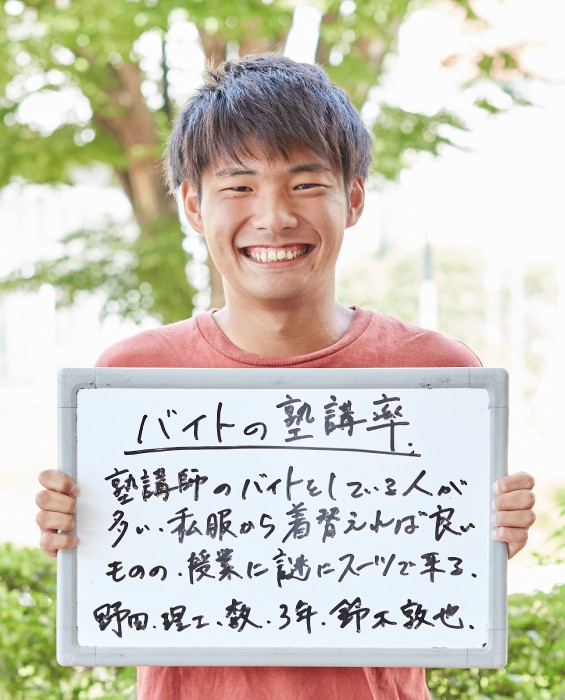 バイトの塾講率.
塾講師のバイトをしている人が
多い.私服から着替えれば良い
ものの.授業に謎にスーツで来る.
野田.理工.数.3年.鈴木敦也.